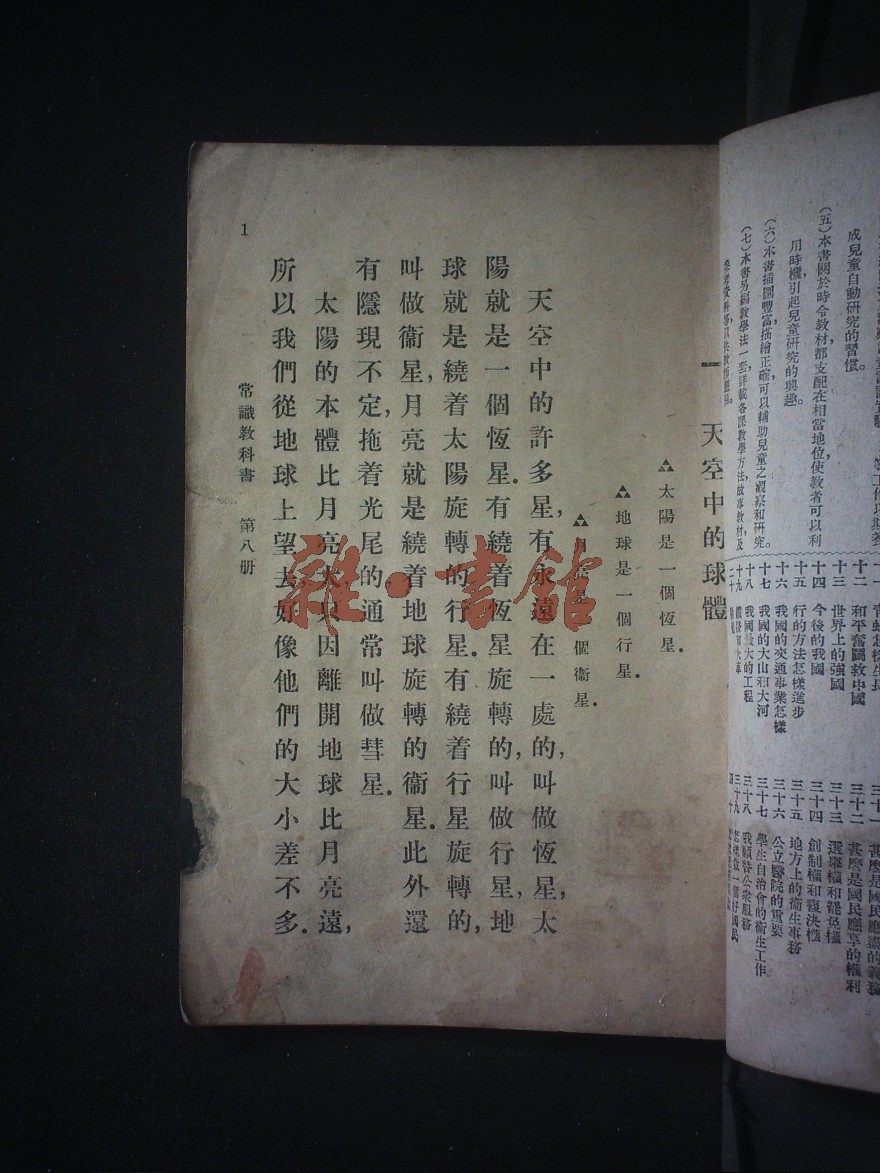 成兒童自動研究的習慣。
(五)本書關於時令教材,都支配在相當地位,使教者可以利
用時機,引起兒童研究的興趣。
(六)本書插圖豐富,描繪正確,可以輔助兒童之觀察和研究。
(七)本書另編教學法一套,詳載各課教學方法,故事教材,及
十二 和平奮鬥救中國
十三 世界上的強國
十四 今後的我國
十五 行的方法怎樣進步
十六 我國的交通事業怎樣
十七 我國的大山和大河
十八 我國最大的工程
三十一 甚麼是國民應盡的義務
三十二 甚麼是國民應享的權利
三十三 選舉權和罷免權
三十四 創制權和複決權
三十五 地方上的衞生事務
三十六 公立醫院的重要
三十七 學生自治會的衞生工作
三十八 我願替公衆服務
三十九 怎樣做一個好國民
一 天空中的球體
太陽是一個恆星。
地球是一個行星。
月亮是一個衞星。
天空中的許多星,有永遠在一處的,叫做恆星,太
陽就是一個恆星。有繞着恆星旋轉的,叫做行星,地
球就是繞着太陽旋轉的行星。有繞着行星旋轉的,
叫做衞星,月亮就是繞着地球旋轉的衞星。此外還
有隱現不定,拖着光尾的,通常叫做彗星。
太陽的本體比月亮大,只因離開地球比月亮遠,
所以我們從地球上望去,好像他們的大小差不多。
常識教科書 第八册
1
雜·書館